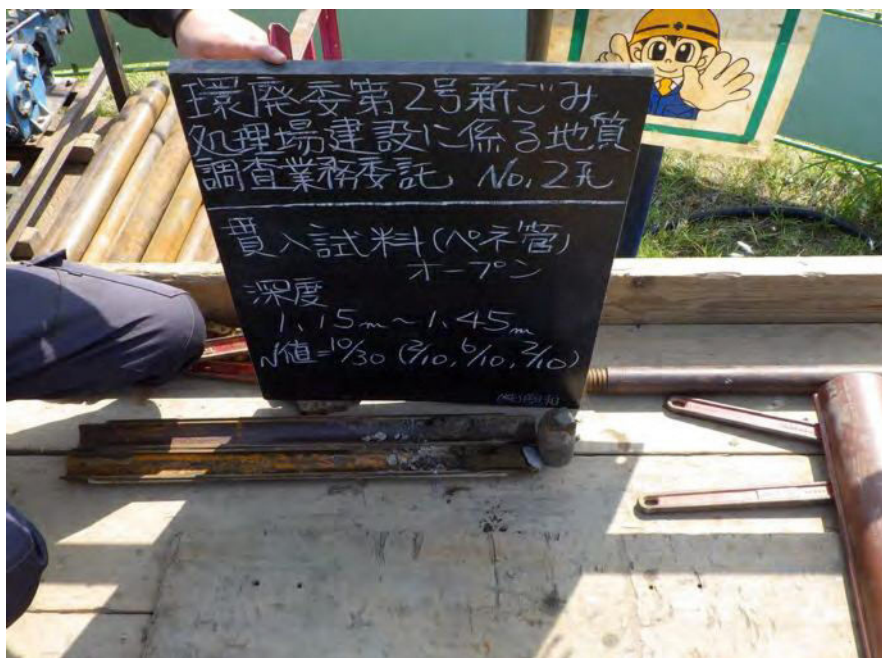 環廃委第2号新ごみ
処理場建設に係る地質
調査業務委託 No.2孔
貫入試料(ペネ管)
オープン
深度
1.15m～1.45m
N値=10/30 (2/10, 6/10, 2/10)